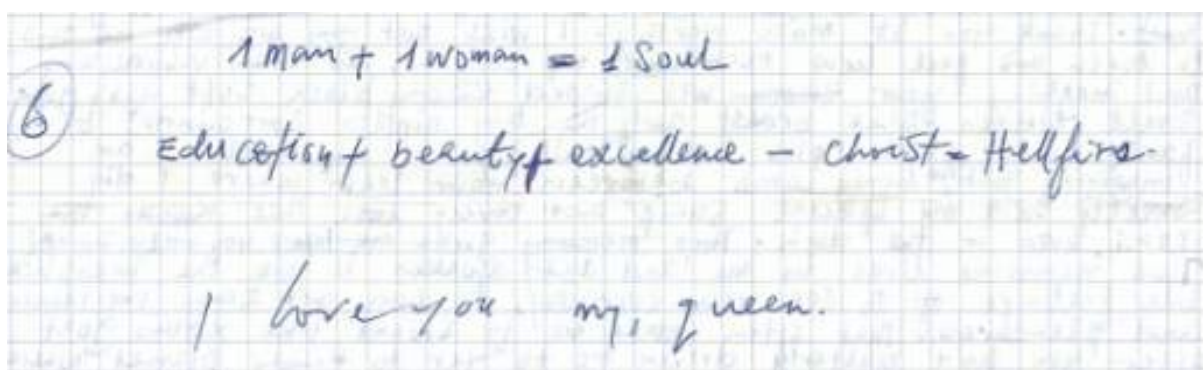 1 man + 1 woman = 1 Soul
6
Education + beauty + excellence - christ = Hellfire.
I love you my, queen.